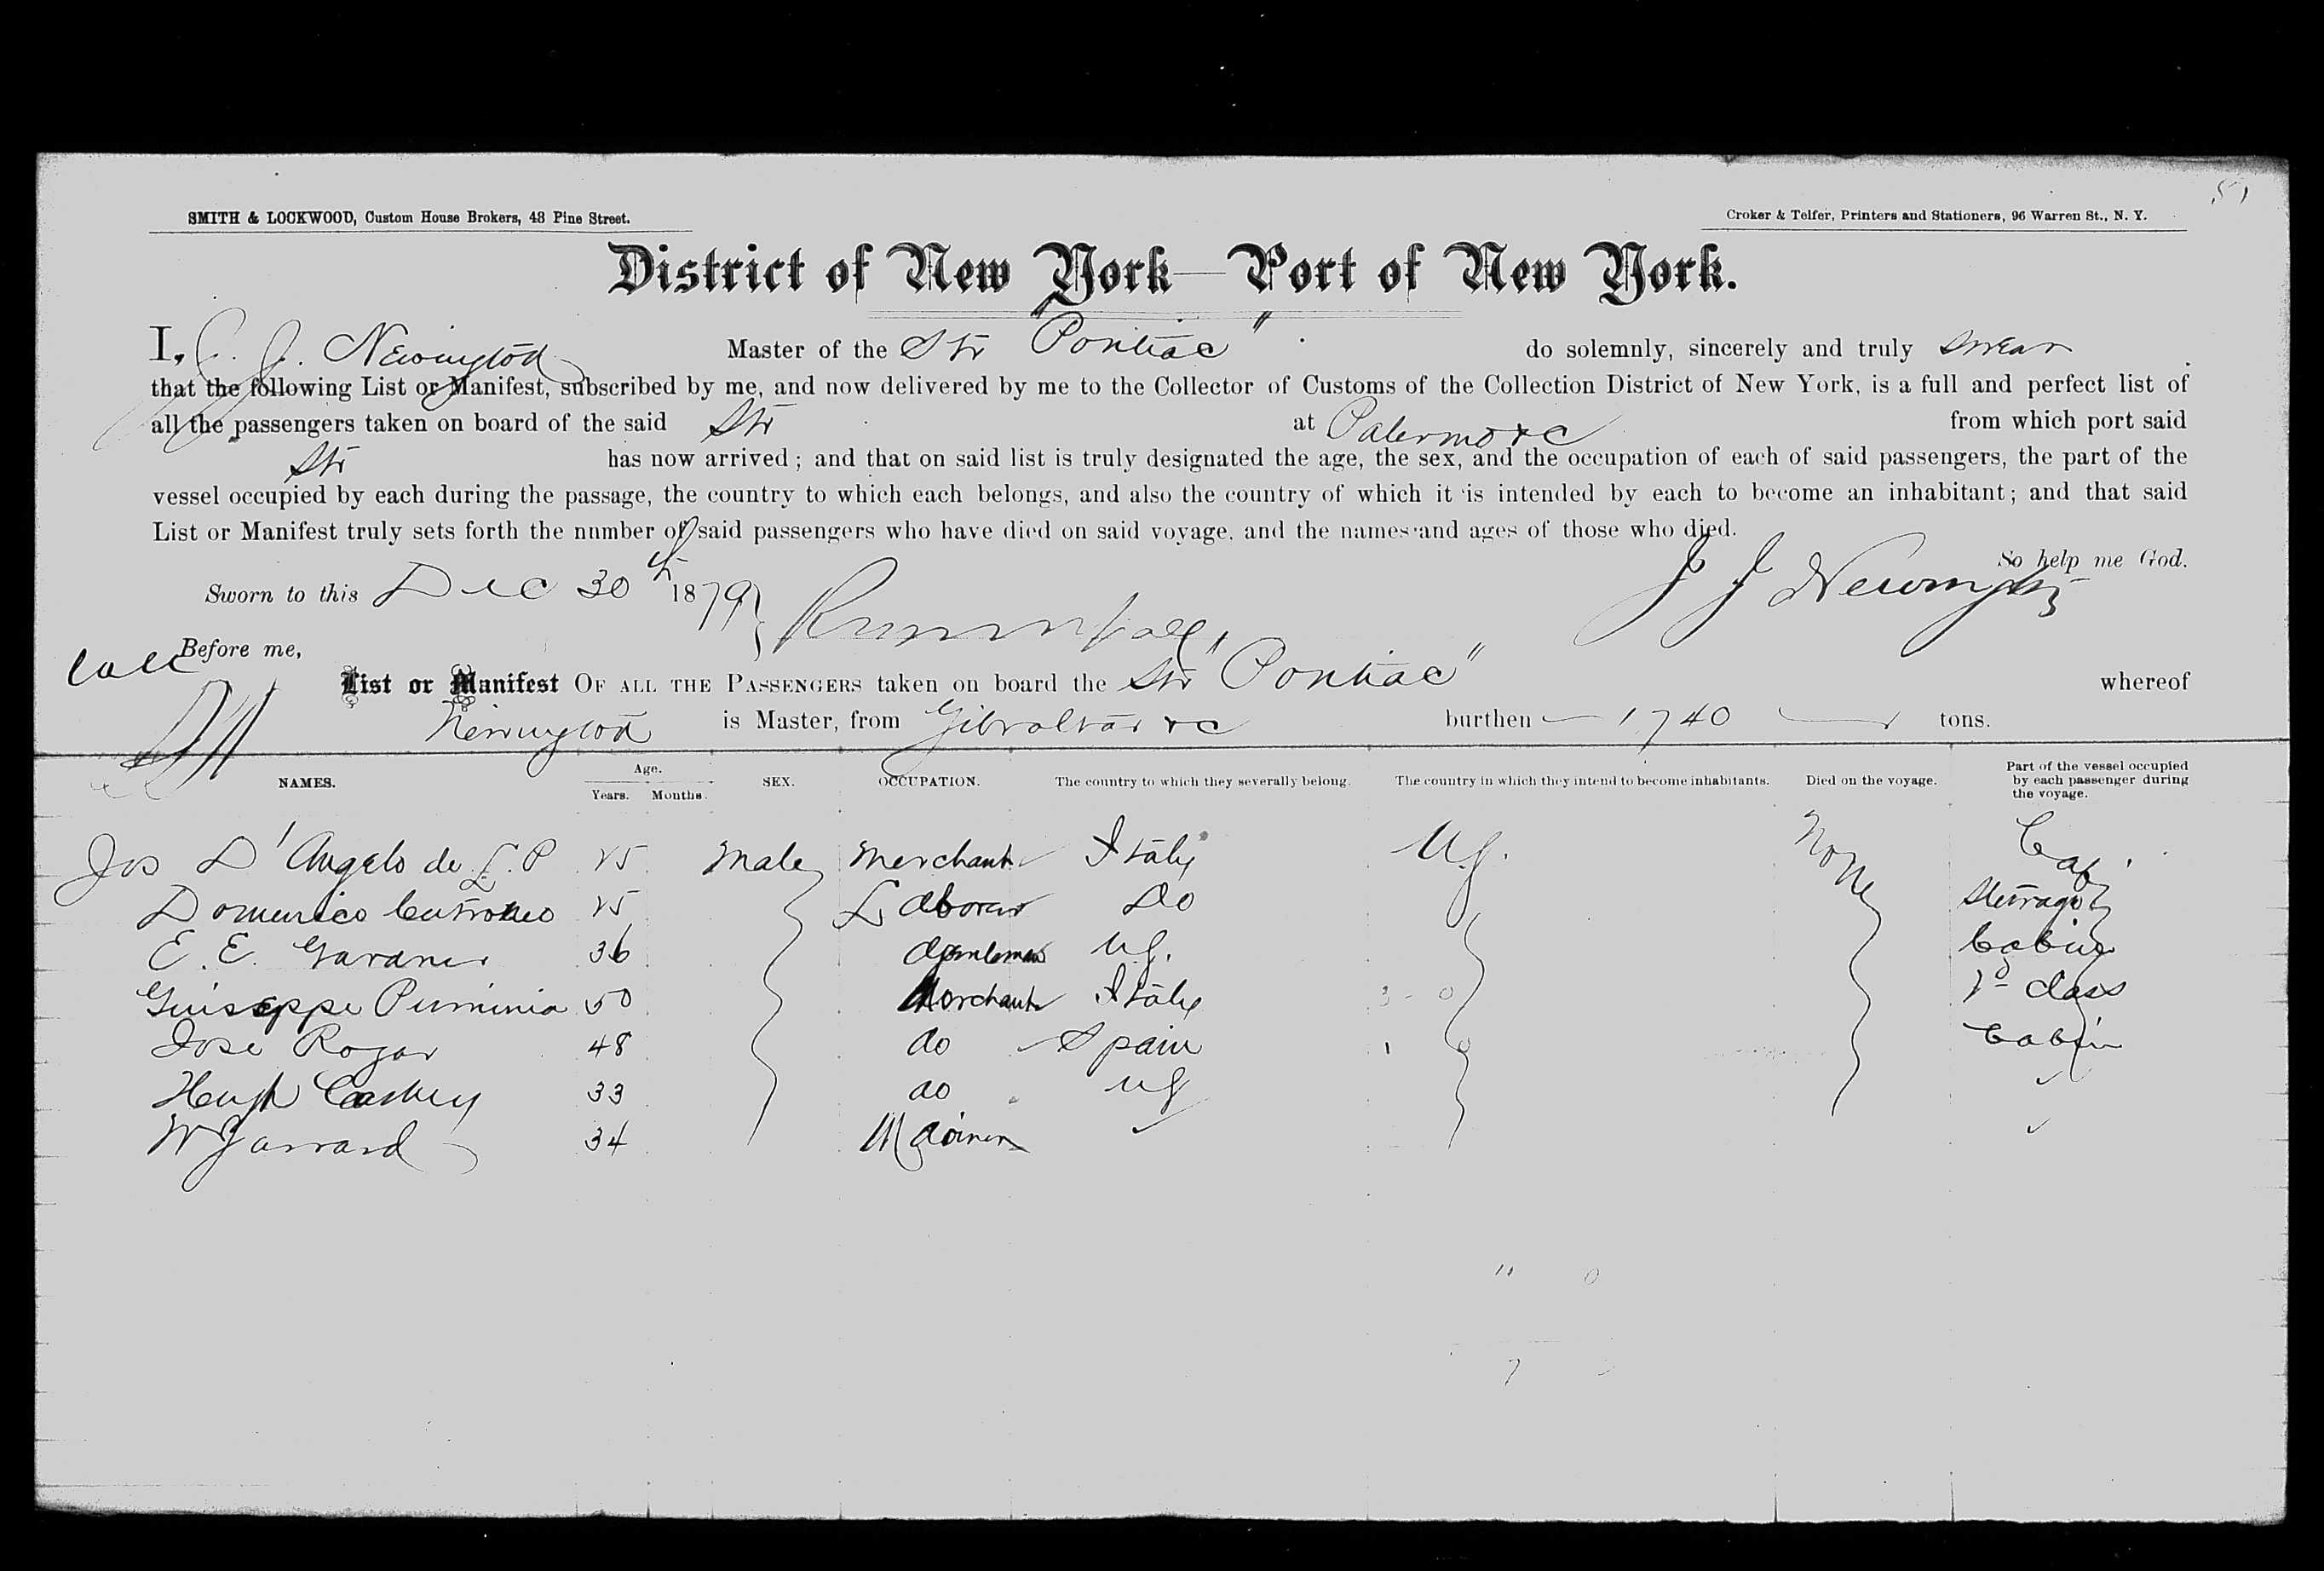 51
SMITH & LOCKWOOD, Custom House Brokers, 48 Pine Street.
Croker & Telfer, Printers and Stationers, 96 Warren St., N. Y.
District of New York—Port of New York.
I, J. J. Newington Master of the Str "Pontiac" do solemnly, sincerely and truly swear
that the following List or Manifest, subscribed by me, and now delivered by me to the Collector of Customs of the Collection District of New York, is a full and perfect list of
all the passengers taken on board of the said Str at Palermo &c from which port said
Str has now arrived; and that on said list is truly designated the age, the sex, and the occupation of each of said passengers, the part of the
vessel occupied by each during the passage, the country to which each belongs, and also the country of which it is intended by each to become an inhabitant; and that said
List or Manifest truly sets forth the number of said passengers who have died on said voyage, and the names and ages of those who died.
So help me God.
Sworn to this Dec 30th 1879 J J Newington
Before me,
List or Manifest OF ALL THE PASSENGERS taken on board the Str "Pontiac" whereof
Newington is Master, from Gibraltar &c burthen 1740 tons.
NAMES. Age. Years. Months. SEX. OCCUPATION. The country to which they severally belong. The country in which they intend to become inhabitants. Died on the voyage. Part of the vessel occupied by each passenger during the voyage.
Jos D'Angelo de L. P 25 Male Merchant Italy U.S. None Cab
Domenico 25 Laborer Do Steerage
E. E. Gardner 36 Gentleman U.S. Cabin
Guiseppe Puminia 50 Merchant Italy 3 - 0 2d Class
José Rogar 48 do Spain 1 0 Cabin
Hugh 33 do US ✓
W Jarrard 34 Mariner ✓ ✓
" 0
7